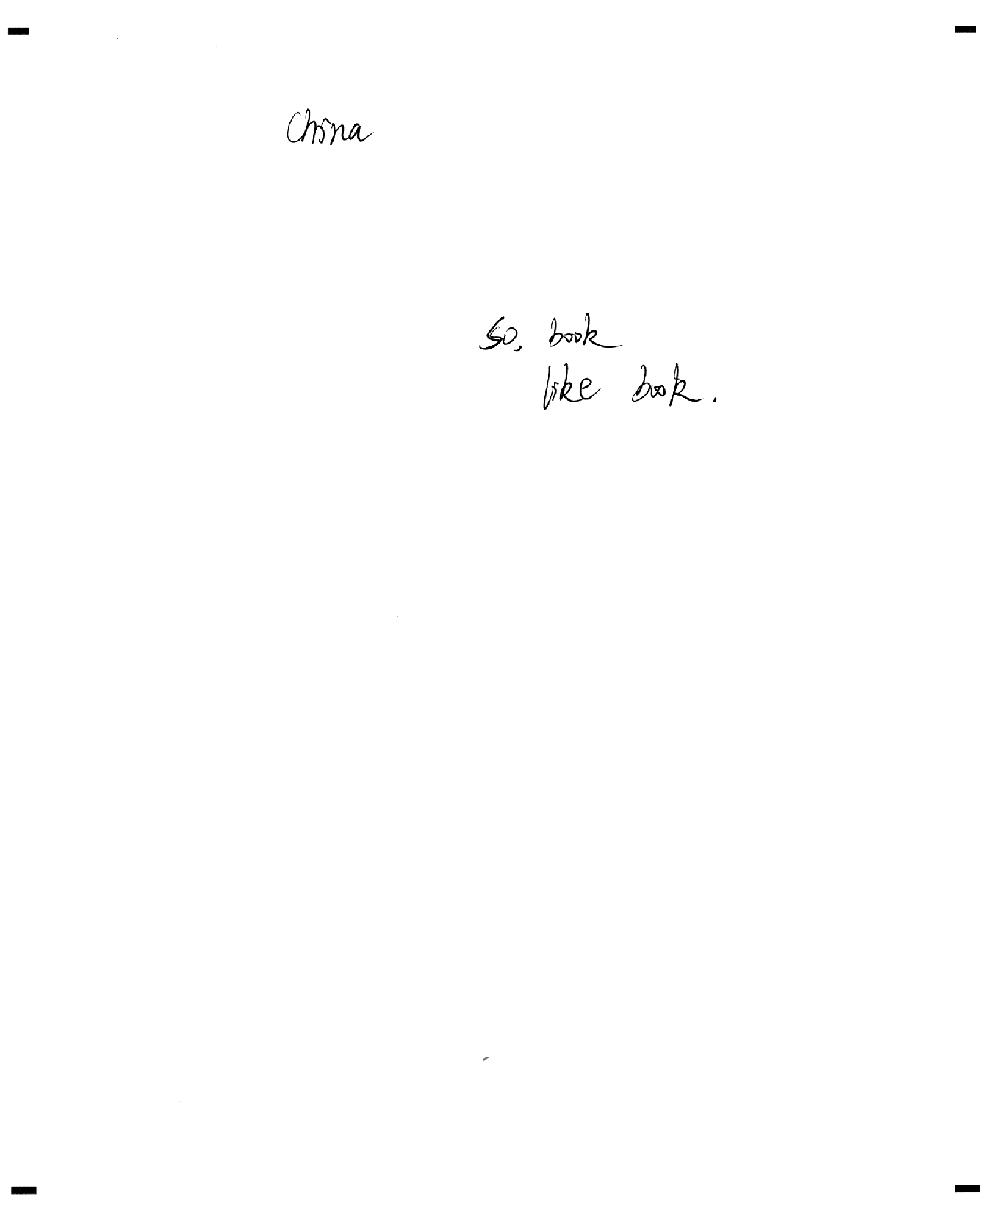 China
so, book
like book.